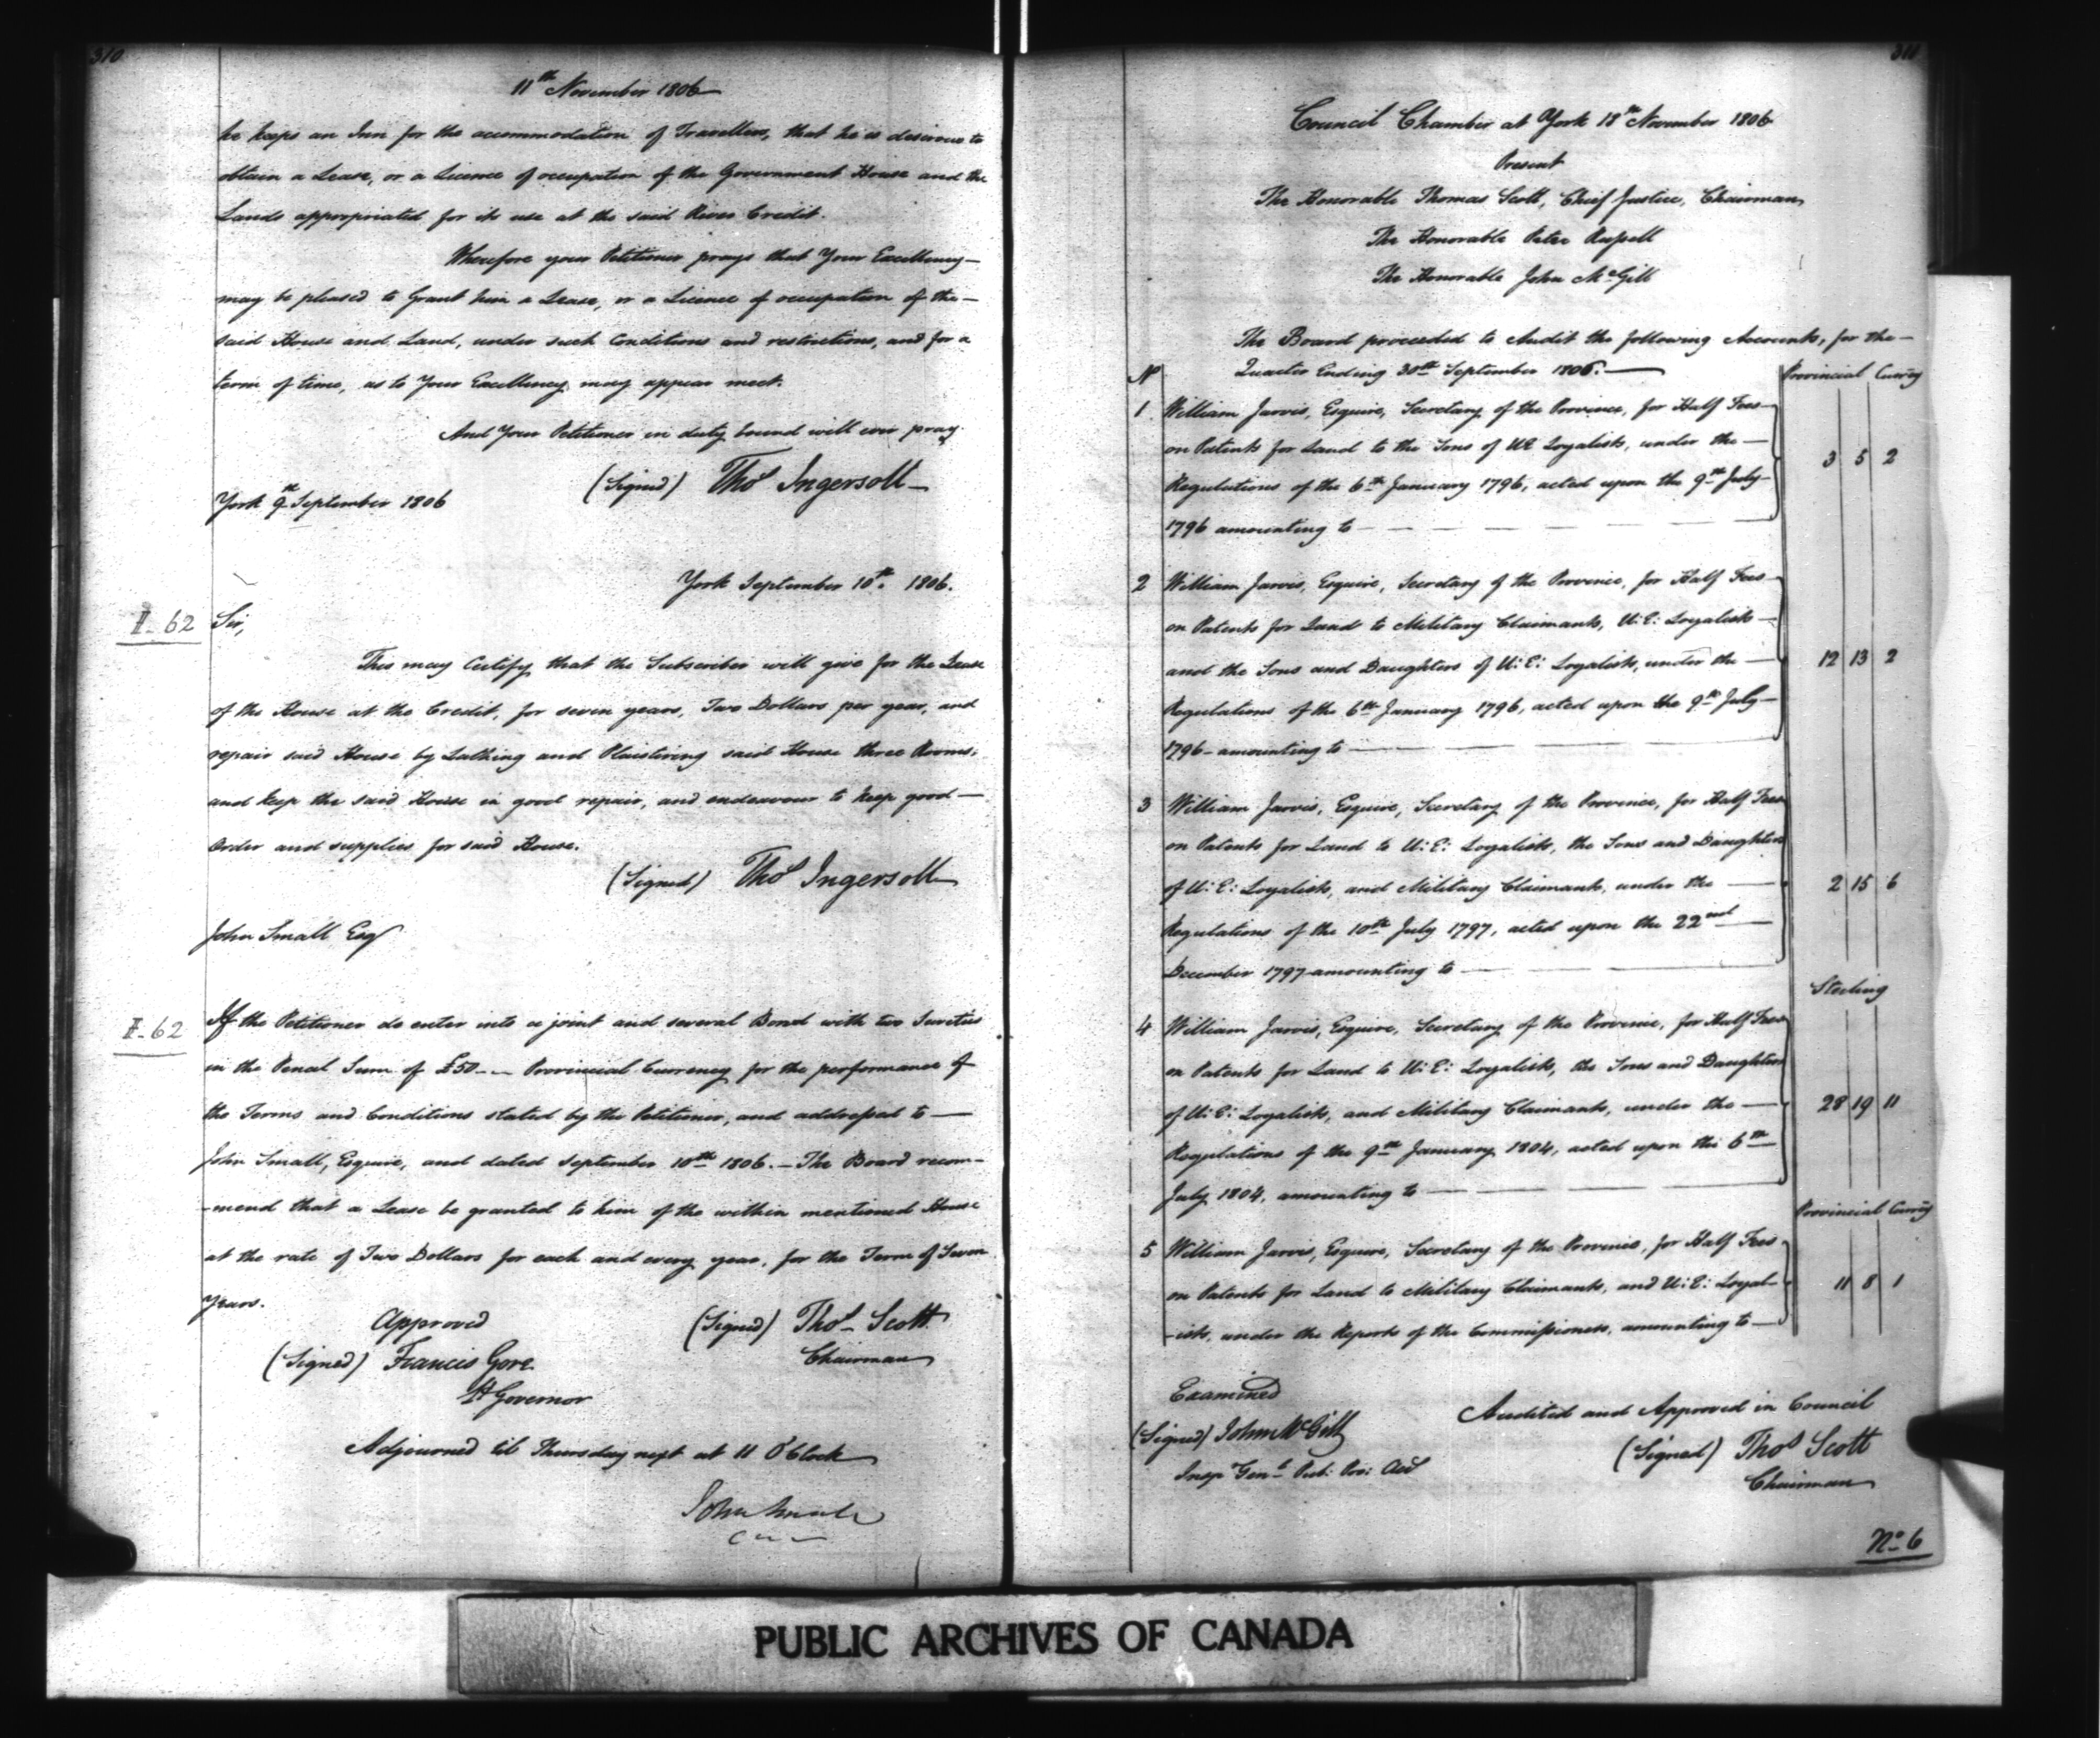 310
11th November 1806
he keeps an Inn for the accommodation of Travellers, that he is desirous to
obtain a Lease, or a Licence of occupation of the Government House and the
Lands appropriated for its use at the said River Credit.
Wherefore your Petitioner prays that Your Excellency
may be pleased to Grant him a Lease, or a Licence of occupation of the
said House and Land, under such Conditions and restrictions, and for a
term of time, as to Your Excellency may appear meet.
And Your Petitioner in duty bound will ever pray.
(Signed) Thos Ingersoll
York 9th September 1806
York September 10th 1806.
I-62
Sir,
This may Certify that the Subscriber will give for the Lease
of the House at the Credit, for seven years, Two Dollars per year, and
repair said House by Lathing and Plaistering said House three Rooms,
and keep the said House in good repair, and endeavour to keep good
order and supplies for said House.
(Signed) Thos Ingersoll
John Small Esqr
I-62
If the Petitioner do enter into a joint and several Bond with two Sureties
in the Penal Sum of £50 Provincial Currency for the performance of
the Terms and Conditions stated by the Petitioner, and addressed to
John Small, Esquire, and dated September 10th 1806. - The Board recom-
-mend that a Lease be granted to him of the within mentioned House
at the rate of Two Dollars for each and every year, for the Term of Seven
Years.
Approved
(Signed) Thos Scott
(Signed) Francis Gore
Chairman
Lt Governor
Adjourned til Thursday next at 11 O'Clock
John Small
311
Council Chamber at York 18th November 1806
Present
The Honorable Thomas Scott, Chief Justice, Chairman
The Honorable Peter Russell
The Honorable John McGill
The Board proceeded to Audit the following Accounts, for the
Quarter Ending 30th September 1806.
No
Provincial Curr'cy
1 William Jarvis, Esquire, Secretary of the Province, for Half Fees
on Patents for Land to the Sons of UE Loyalists, under the
Regulations of the 6th January 1796, acted upon the 9th July
1796 amounting to
3 5 2
2 William Jarvis, Esquire, Secretary of the Province, for Half Fees
on Patents for Land to Military Claimants, U:E: Loyalists
and the Sons and Daughters of U:E: Loyalists, under the
Regulations of the 6th January 1796, acted upon the 9th July
1796 - amounting to
12 13 2
3 William Jarvis, Esquire, Secretary of the Province, for Half Fees
on Patents for Land to U:E: Loyalists, the Sons and Daughters
of U:E: Loyalists, and Military Claimants, under the
Regulations of the 10th July 1797, acted upon the 22nd
December 1797 amounting to
2 15 6
Sterling
4 William Jarvis, Esquire, Secretary of the Province, for Half Fees
on Patents for Land to U:E: Loyalists, the Sons and Daughters
of U:E: Loyalists, and Military Claimants, under the
Regulations of the 9th January 1804, acted upon the 6th
July 1804, amounting to
28 19 11
Provincial Curr'cy
5 William Jarvis, Esquire, Secretary of the Province, for Half Fees
on Patents for Land to Military Claimants, and U:E: Loyal-
-ists, under the Reports of the Commissioners, amounting to
11 8 1
Examined
Audited and Approved in Council
(Signed) John McGill
(Signed) Thos Scott
Insp Genl Pub: Pro: Acts
Chairman
No 6
PUBLIC ARCHIVES OF CANADA